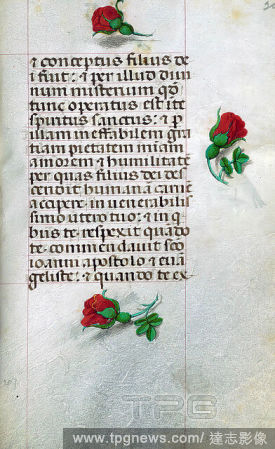 ⁊ conceptus filius de
i fuit: ⁊ per illud divi
num misterium qd̄
tunc operatus est ite
spiritus sanctus: ⁊ p
illam ineffabilem gra
tiam pietatem mīam
amorem ⁊ humilitatē
per quas filius dei des
cendit humanā carnē
accipere, in venerabilis
simo utero tuo: ⁊ in q
bus te respexit quādo
te commendavit scō
ioanni apostolo ⁊ euā
geliste: ⁊ quando te ex
TPG
www.tpgnews.com/達志影像